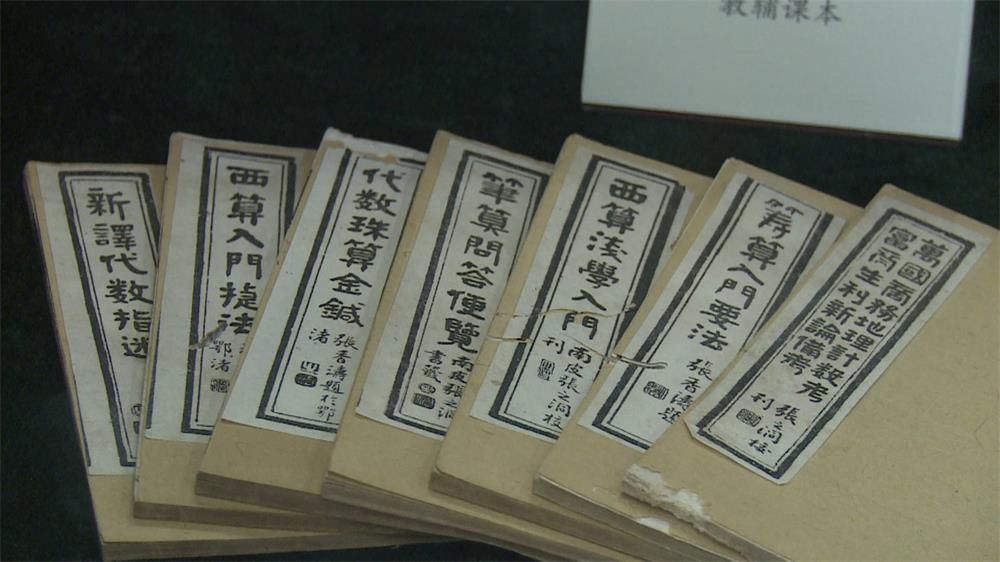 教辅课本
新譯代数指迷
西算入門捷法
鄂渚
代数珠算金鍼
張香濤題於鄂
渚
筆算問答便覽
南皮張之洞
書籤
西算浅學入門
南皮張之洞校
刊
筹算入門要法
張香濤題
萬國商務地理計数考
富商生利新論備考
張之洞校
刊